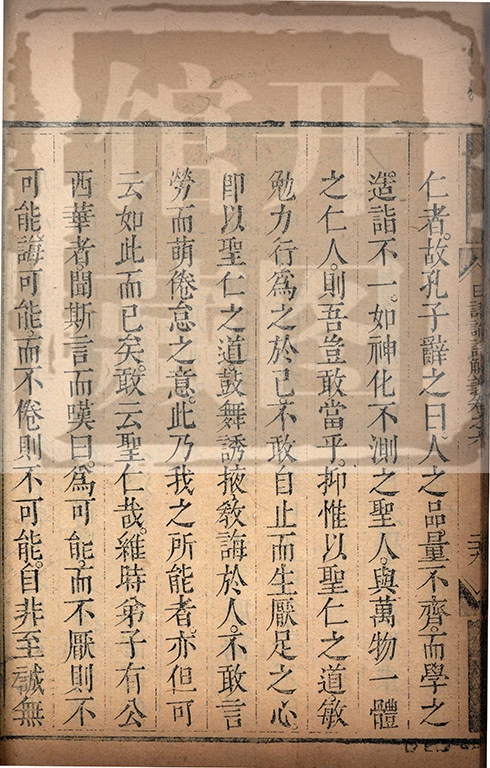 日講論語解義卷之六
仁者。故孔子辭之曰。人之品量不齊。而學之
造詣不一。如神化不測之聖人。與萬物一體
之仁人。則吾豈敢當乎。抑惟以聖仁之道敏
勉力行。爲之於己。不敢自止而生厭足之心
即以聖仁之道鼓舞誘掖敎誨於人。不敢言
勞而萌倦怠之意。此乃我之所能者。亦但可
云如此而已矣。敢云聖仁哉。維時弟子有公
西華者聞斯言而嘆曰。爲可能。而不厭則不
可能。誨可能。而不倦則不可能。自非至誠無